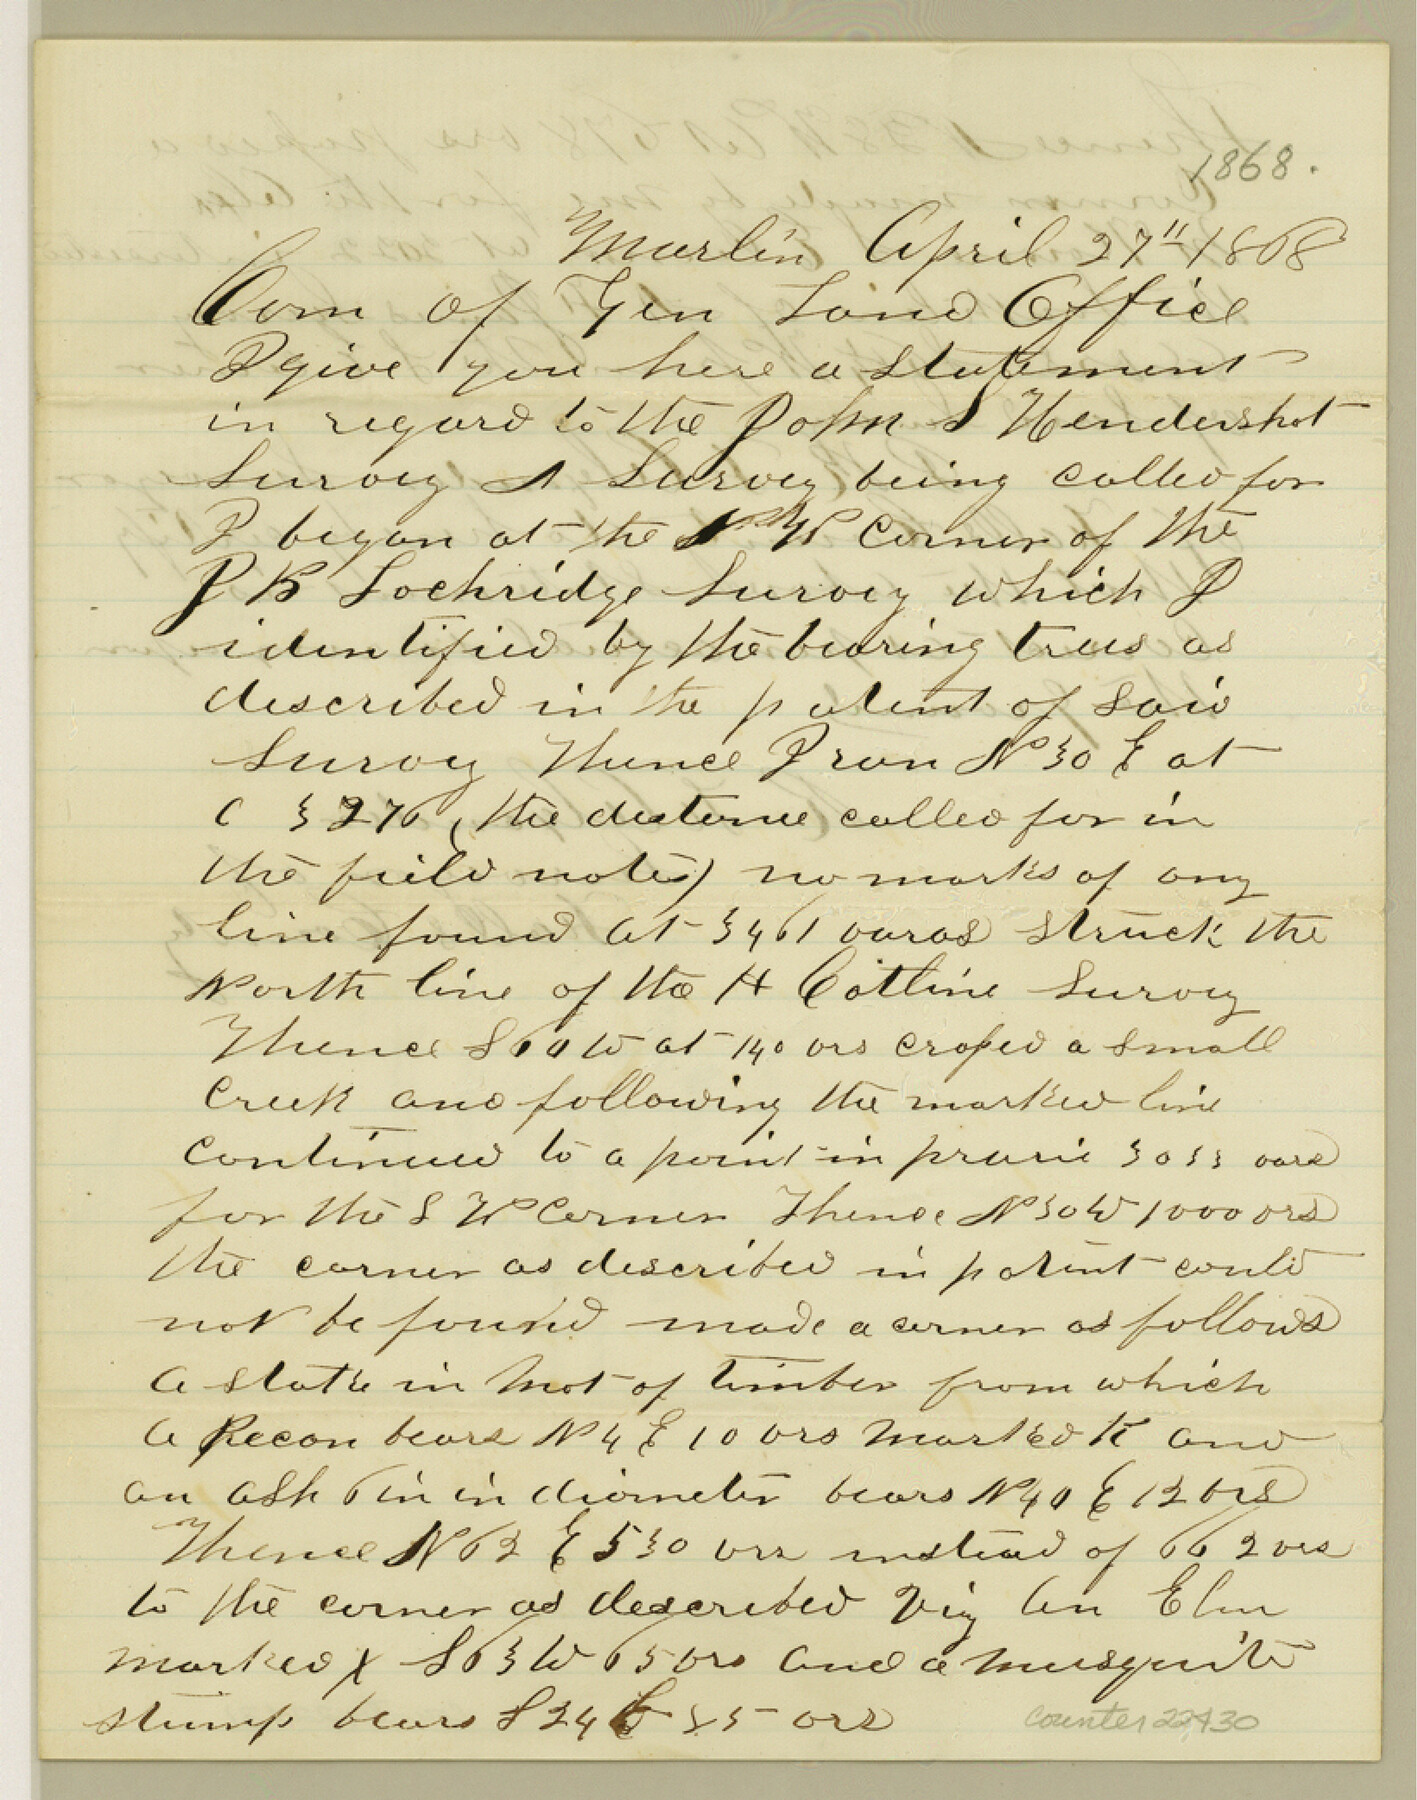 1868.
Marlin April 27" 1868
Com of Gen Land Office
I give you here a statement
in regard to the John S Hendershot
Survey A Survey being called for
I began at the N W Corner of the
J B Lochridge Survey which I
identified by the bearing trees as
described in the patent of said
Survey Thence I run N 30 E at
3276 (the distance called for in
the field notes) no marks of any
line found at 3461 varas struck the
North line of the H Catline Survey
Thence S 60 W at 140 vrs crossed a small
Creek and following the marked line
continued to a point in prarie 3033 vars
for the S W Corner Thence N 30 W 1000 vrs
the corner as described in patent could
not be found made a corner as follows
a stake in mot of timber from which
a Pecan bears N 4 E 10 vrs marked K and
an ash 6 in in diameter bears N 40 E 12 vrs
Thence N 62 E 530 vrs instead of 662 vrs
to the corner as described Viz An Elm
marked X S 63 W 65 vrs and a musquite
stump bears S 24 E 35 vrs
counter 22430